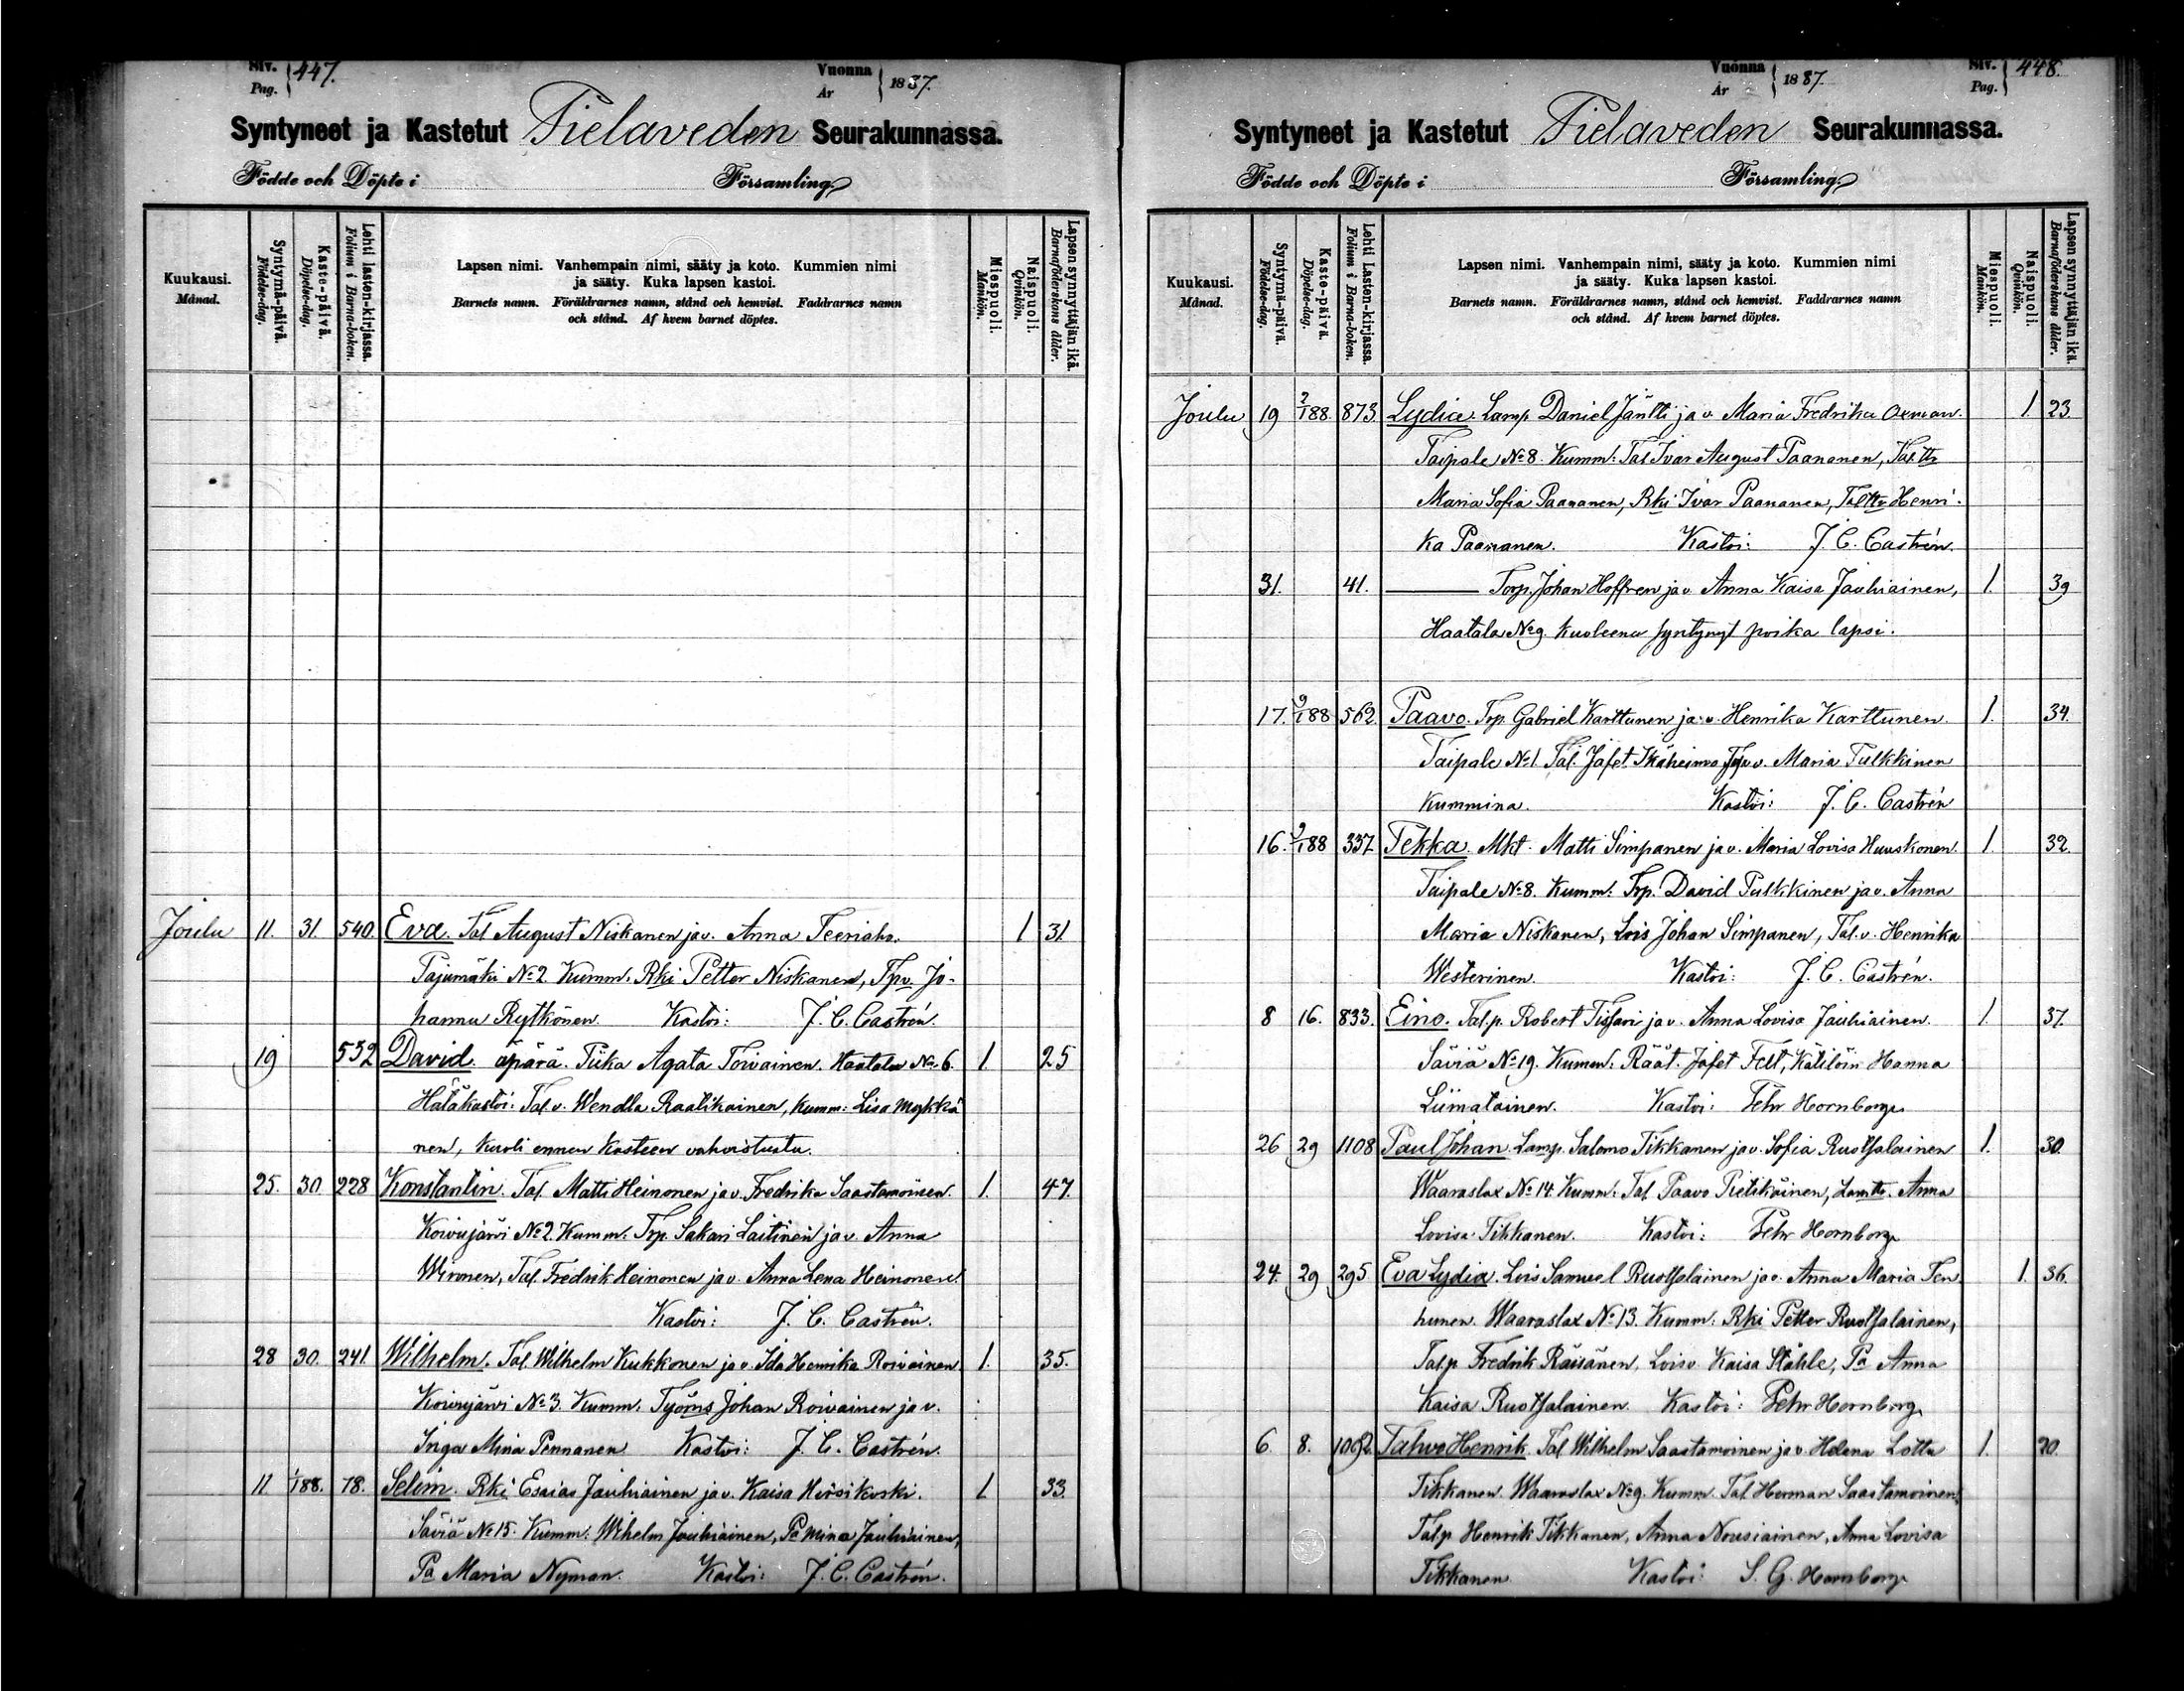 Siv. Pag. 447.
Vuonna År 1887.
Syntyneet ja Kastetut Pielaveden Seurakunnassa.
Födde och Döpte i Församling.
Kuukausi. Månad.
Syntymä-päivä. Födelse-dag.
Kaste-päivä. Döpelse-dag.
Lehti lasten-kirjassa. Folium i Barna-boken.
Lapsen nimi. Vanhempain nimi, sääty ja koto. Kummien nimi
ja sääty. Kuka lapsen kastoi.
Barnets namn. Föräldrarnes namn, stånd och hemvist. Faddrarnes namn
och stånd. Af hvem barnet döptes.
Miespuoli. Mankön.
Naispuoli. Qvinkön.
Lapsen synnyttäjän ikä. Barnaföderskans ålder.
Joulu 11. 31. 540. Eva. Tal August Niskanen ja v. Anna Teeriaho. 1 31.
Pajumäki No 2. Kumm. Rki Petter Niskanen, Tpv. Jo-
hanna Rytkönen. Kastoi: J. C. Castrén.
19 532 David. äpärä. Piika Agata Toivainen. Haatala No 6. 1. 25
Hätäkastoi: Tal. v. Wendla Raatikainen, Kumm: Lisa Mykkä
nen, kuoli ennen kasteen vahvistusta.
25. 30. 228 Konstantin. Tal. Matti Heinonen ja v. Fredrika Saastamoinen. 1. 47.
Koivujärvi No 2. Kumm. Trp. Sakari Laitinen ja v. Anna
Wironen, Tal. Fredrik Heinonen ja v. Anna Lena Heinonen.
Kastoi: J. C. Castrén.
28 30. 241. Wilhelm. Tal. Wilhelm Kukkonen ja v. Ida Henrika Roivainen 1. 35.
Koivujärvi No 3. Kumm. Työms Johan Roivainen ja v.
Inga Mina Pennanen Kastoi: J. C. Castrén.
11 1/1 88. 78. Selim. Rki Esaias Jauhiainen ja v. Kaisa Hirsikoski. 1 33.
Säviä No 15. Kumm: Wilhelm Jauhiainen, Pa Mina Jauhiainen,
Pa Maria Nyman. Kastoi: J. C. Castrén.
Siv. Pag. 448.
Vuonna År 1887.
Syntyneet ja Kastetut Pielaveden Seurakunnassa.
Födde och Döpte i Församling.
Kuukausi. Månad.
Syntymä-päivä. Födelse-dag.
Kaste-päivä. Döpelse-dag.
Lehti Lasten-kirjassa. Folium i Barna-boken.
Lapsen nimi. Vanhempain nimi, sääty ja koto. Kummien nimi
ja sääty. Kuka lapsen kastoi.
Barnets namn. Föräldrarnes namn, stånd och hemvist. Faddrarnes namn
och stånd. Af hvem barnet döptes.
Miespuoli. Mankön.
Naispuoli. Qvinkön.
Lapsen synnyttäjän ikä. Barnaföderskans ålder.
Joulu 19 2/1 88. 873. Lydia. Lamp. Daniel Jäntti ja v. Maria Fredrika Oxman. 1. 23.
Taipale No 8. Kumm: Tal Ivar August Paananen, Tal. ttr
Maria Sofia Paananen, Rki Ivar Paananen, Tal ttr Henri-
ka Paananen. Kastoi: J. C. Castrén.
31. 41. Torp. Johan Hoffren ja v. Anna Kaisa Jauhiainen, 1. 39
Haatala No 9. Kuolleena syntynyt poika lapsi.
17. 9/1 88 562. Paavo. Trp. Gabriel Karttunen ja v. Henrika Karttunen. 1. 34.
Taipale No 1. Tal. Jafet Ikäheimo ja v. Maria Pulkkinen
kummina. Kastoi: J. C. Castrén
16. 9/1 88 337. Pekka. Mkt. Matti Simpanen ja v. Maria Lovisa Huuskonen. 1. 32.
Taipale No 8. Kumm: Trp. David Pulkkinen ja v. Anna
Maria Niskanen, Lois Johan Simpanen, Tal. v. Henrika
Westerinen. Kastoi: J. C. Castrén.
8 16. 833. Eino. Tal. p. Robert Tissari ja v. Anna Lovisa Jauhiainen. 1. 37.
Säviä No 19. Kumm: Räät. Jafet Felt, Kätilöin Hanna
Liimatainen. Kastoi: Fehr Hornborg
26 29 1108 Paul Johan. Lamp. Salomo Tikkanen ja v. Sofia Ruotsalainen 1. 30.
Waaraslax No 14. Kumm: Tal. Paavo Pietikäinen, Lam ttr. Anna
Lovisa Tikkanen. Kastoi: Fehr Hornborg
24. 29 295 Eva Lydia. Lois Samuel Ruotsalainen ja v. Anna Maria Ten 1. 36.
hunen. Waaraslax No 13. Kumm: Rki Petter Ruotsalainen,
Tal. p. Fredrik Räisänen, Lois v. Kaisa Ståhle, Pa Anna
Kaisa Ruotsalainen. Kastoi: Fehr Hornborg
6. 8. 1092. Tahvo Henrik. Tal Wilhelm Saastamoinen ja v. Helena Lotta 1. 20.
Tikkanen. Waaraslax No 9. Kumm. Tal Herman Saastamoinen
Tal. p. Henrik Tikkanen, Anna Nousiainen, Anna Lovisa
Tikkanen Kastoi: S. G. Hornborg